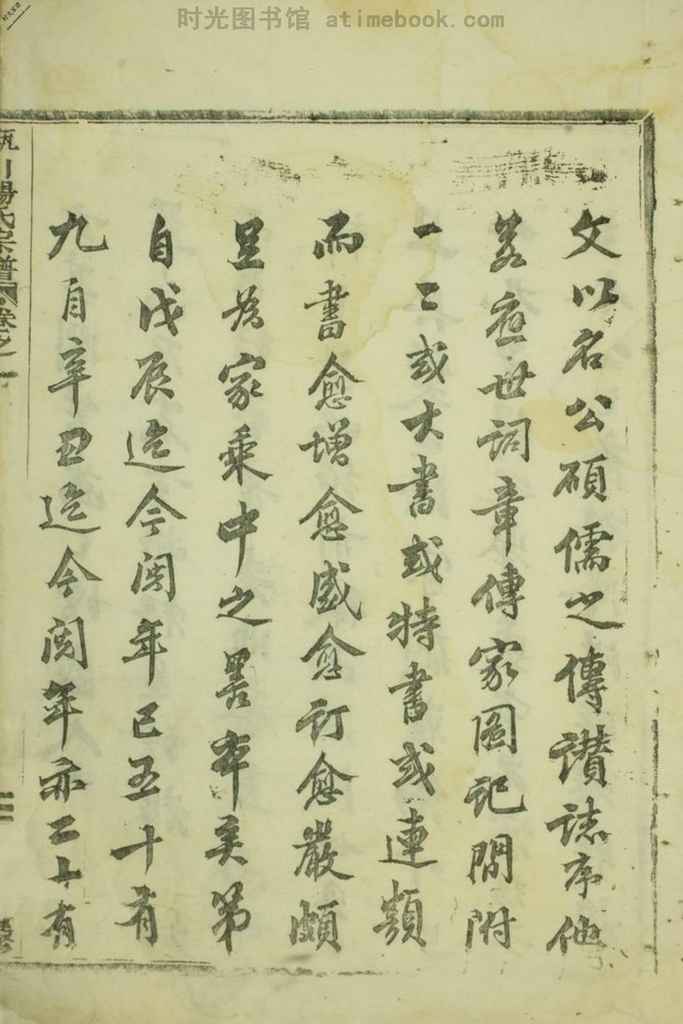 时光图书馆 atimebook.com
文以名公碩儒之傳讃誌序他
若應世詞章傳家圖記間附
一二或大書或特書或連類
而書愈增愈盛愈訂愈嚴頗
足為家乘中之善本矣第
自戊辰迄今閱年已五十有
九自辛丑迄今閱年亦二十有
川楊氏宗譜 卷之一